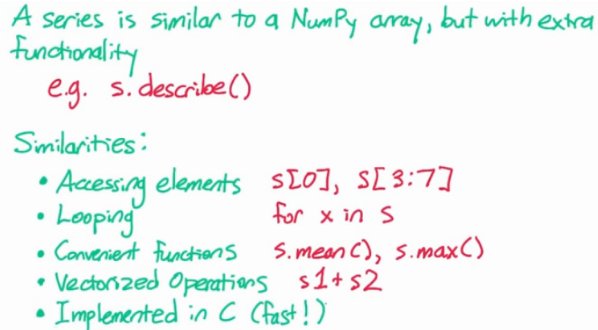 A series is similar to a NumPy array, but with extra
functionality
e.g. s.describe()
Similarities:
• Accessing elements s[0], s[3:7]
• Looping for x in s
• Convenient functions s.mean(), s.max()
• Vectorized Operations s1+s2
• Implemented in C (fast!)